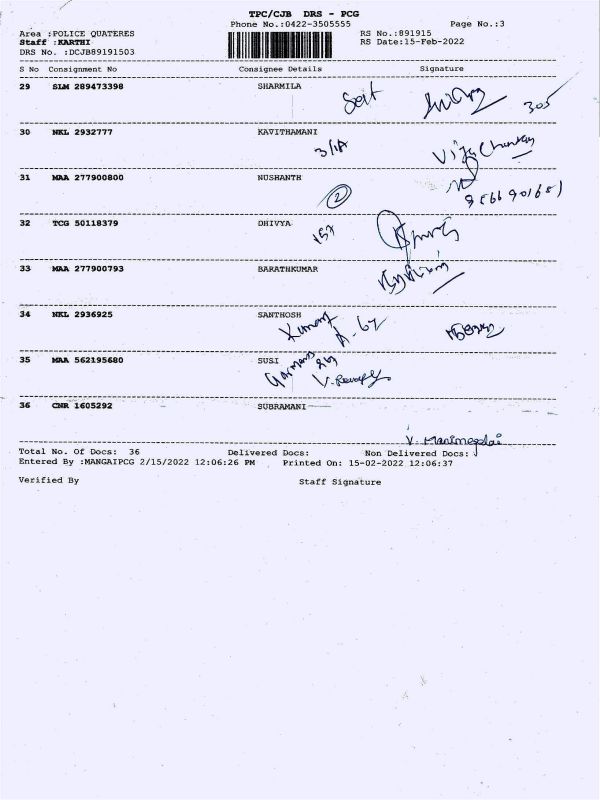 TPC/CJB DRS - PCG
Phone No.:0422-3505555 Page No.:3
Area :POLICE QUATERES RS No.:891915
Staff :KARTHI RS Date:15-Feb-2022
DRS No. :DCJB89191503
S No Consignment No Consignee Details Signature
29 SLM 289473398 SHARMILA
305
30 NKL 2932777 KAVITHAMANI
31 MAA 277900800 NUSHANTH
2
32 TCG 50118379 DHIVYA
33 MAA 277900793 BARATHKUMAR
34 NKL 2936925 SANTHOSH
35 MAA 562195680 SUSI
36 CNR 1605292 SUBRAMANI
V. Manimegalai
Total No. Of Docs: 36 Delivered Docs: Non Delivered Docs:
Entered By :MANGAIPCG 2/15/2022 12:06:26 PM Printed On: 15-02-2022 12:06:37
Verified By Staff Signature